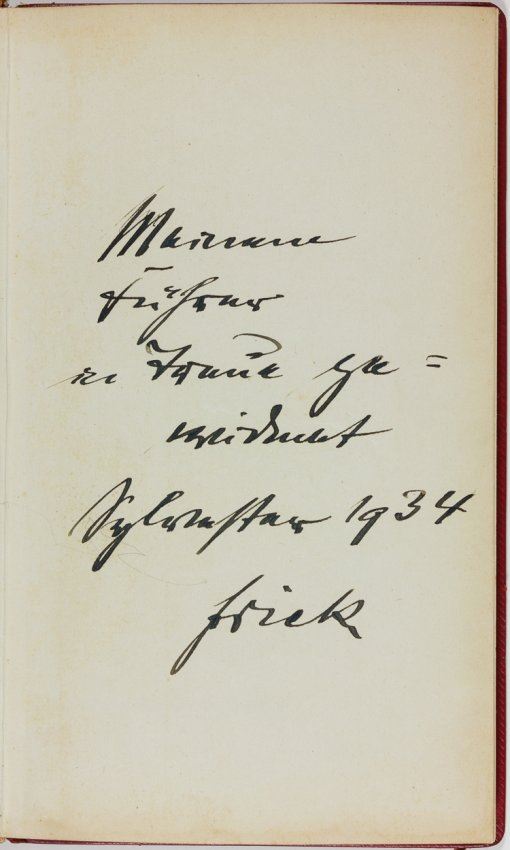 Meinem
Führer
in Treue ge=
widmet
Sylvester 1934
Frick